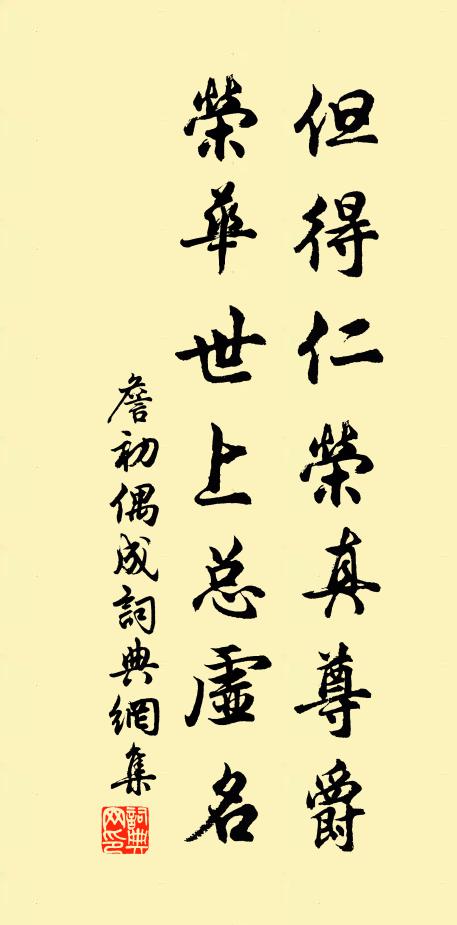 但得仁榮真尊爵
榮華世上总虛名
詹初偶成詞典網集
詞典网印